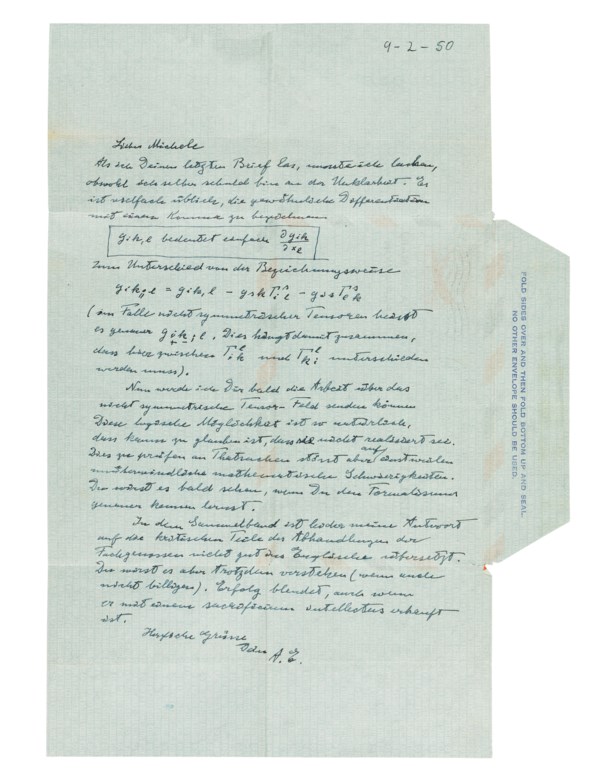 9-2-50
Lieber Michele
Als ich Deinen letzten Brief las, musste ich lachen,
obwohl ich selber schuld bin an der Unklarheit. Es
ist vielfach üblich, die gewöhnliche Differentiation
mit einem Komma zu bezeichnen
gik,l bedeutet einfach ∂gik/∂xl
zum Unterschied von der Bezeichnungsweise
gik;l = gik,l - gsk Γ^s_il - gis Γ^s_lk
(im Falle nicht symmetrischer Tensoren heisst
es genauer gik;l. Dies hängt damit zusammen,
dass hier zwischen Γ^l_ik und Γ^l_ki unterschieden
werden muss).
Nun werde ich Dir bald die Arbeit über das
nicht symmetrische Tensor-Feld senden können
Diese logische Möglichkeit ist so natürlich,
dass kaum zu glauben ist, dass sie nicht realisiert sei.
Dies zu prüfen an Thatsachen stösst aber auf einstweilen
unüberwindliche mathematische Schwierigkeiten.
Du wirst es bald sehen, wenn Du den Formalismus
genauer kennen lernst.
In dem Sammelband ist leider meine Antwort
auf die kritischen Teile der Abhandlungen der
Fachgenossen nicht gut ins Englische übersetzt.
Du wirst es aber trotzdem verstehen (wenn auch
nicht billigen). Erfolg blendet, auch wenn
er mit einem sacrificium intellectus erkauft
ist.
Herzliche Grüsse
Dein A. E.
FOLD SIDES OVER AND THEN FOLD BOTTOM UP AND SEAL
NO OTHER ENVELOPE SHOULD BE USED.